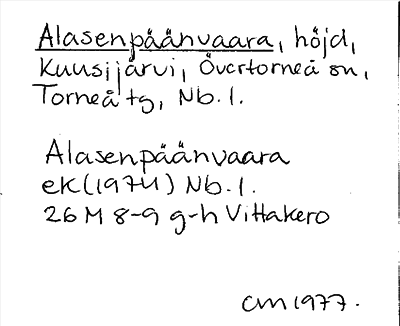 Alasenpäänvaara, höjd,
Kuusijärvi, Övertorneå sn,
Torneå tg, Nb. l.
Alasenpäänvaara
ek (1974) Nb. l.
26 M 8-9 g-h Vittakero
CM 1977.